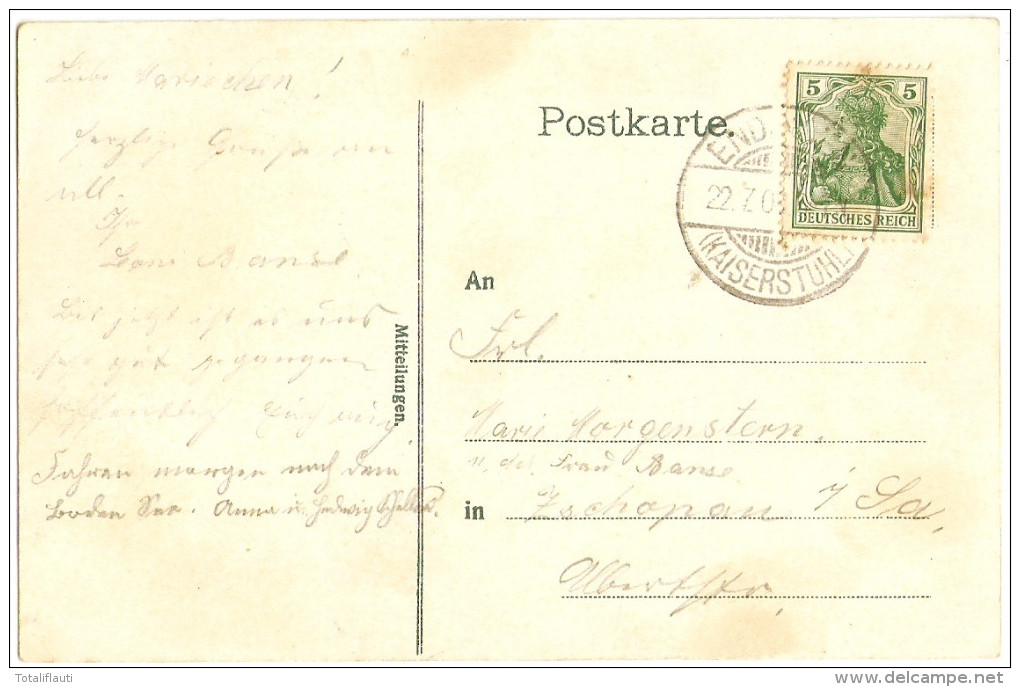 Liebe Mariechen!
herzliche Grüße an
all.
Ihr
Leoni Banse.
Bis jetzt ist es uns
sehr gut gegangen
hoffentlich Euch
Fahren morgen nach dem
Boden See. Anna u. Hedwig
Mitteilungen.
Postkarte.
5 5
DEUTSCHES REICH
END
22.7.0
(KAISERSTUHL)
An
Frl.
Marie Morgenstern.
Frau Banse
in Zschopau i/Sa,
Albertstr.
Totaliflauti
delcampe.net